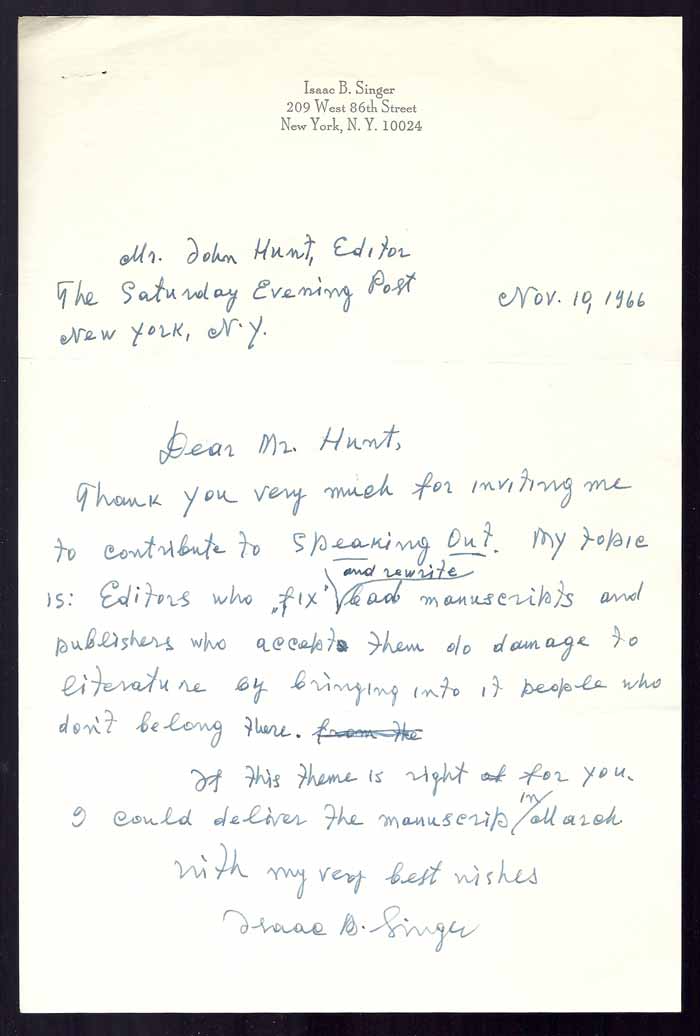 Isaac B. Singer
209 West 86th Street
New York, N. Y. 10024
Mr. John Hunt, Editor
The Saturday Evening Post
Nov. 10, 1966
New York, N.Y.
Dear Mr. Hunt,
Thank you very much for inviting me
to contribute to Speaking Out. My topic
and rewrite
is: Editors who „fix" bad manuscripts and
publishers who accept them do damage to
literature by bringing into it people who
don't belong there. from the
If this theme is right of for you.
in
I could deliver the manuscrip March
with my very best wishes
Isaac B. Singer